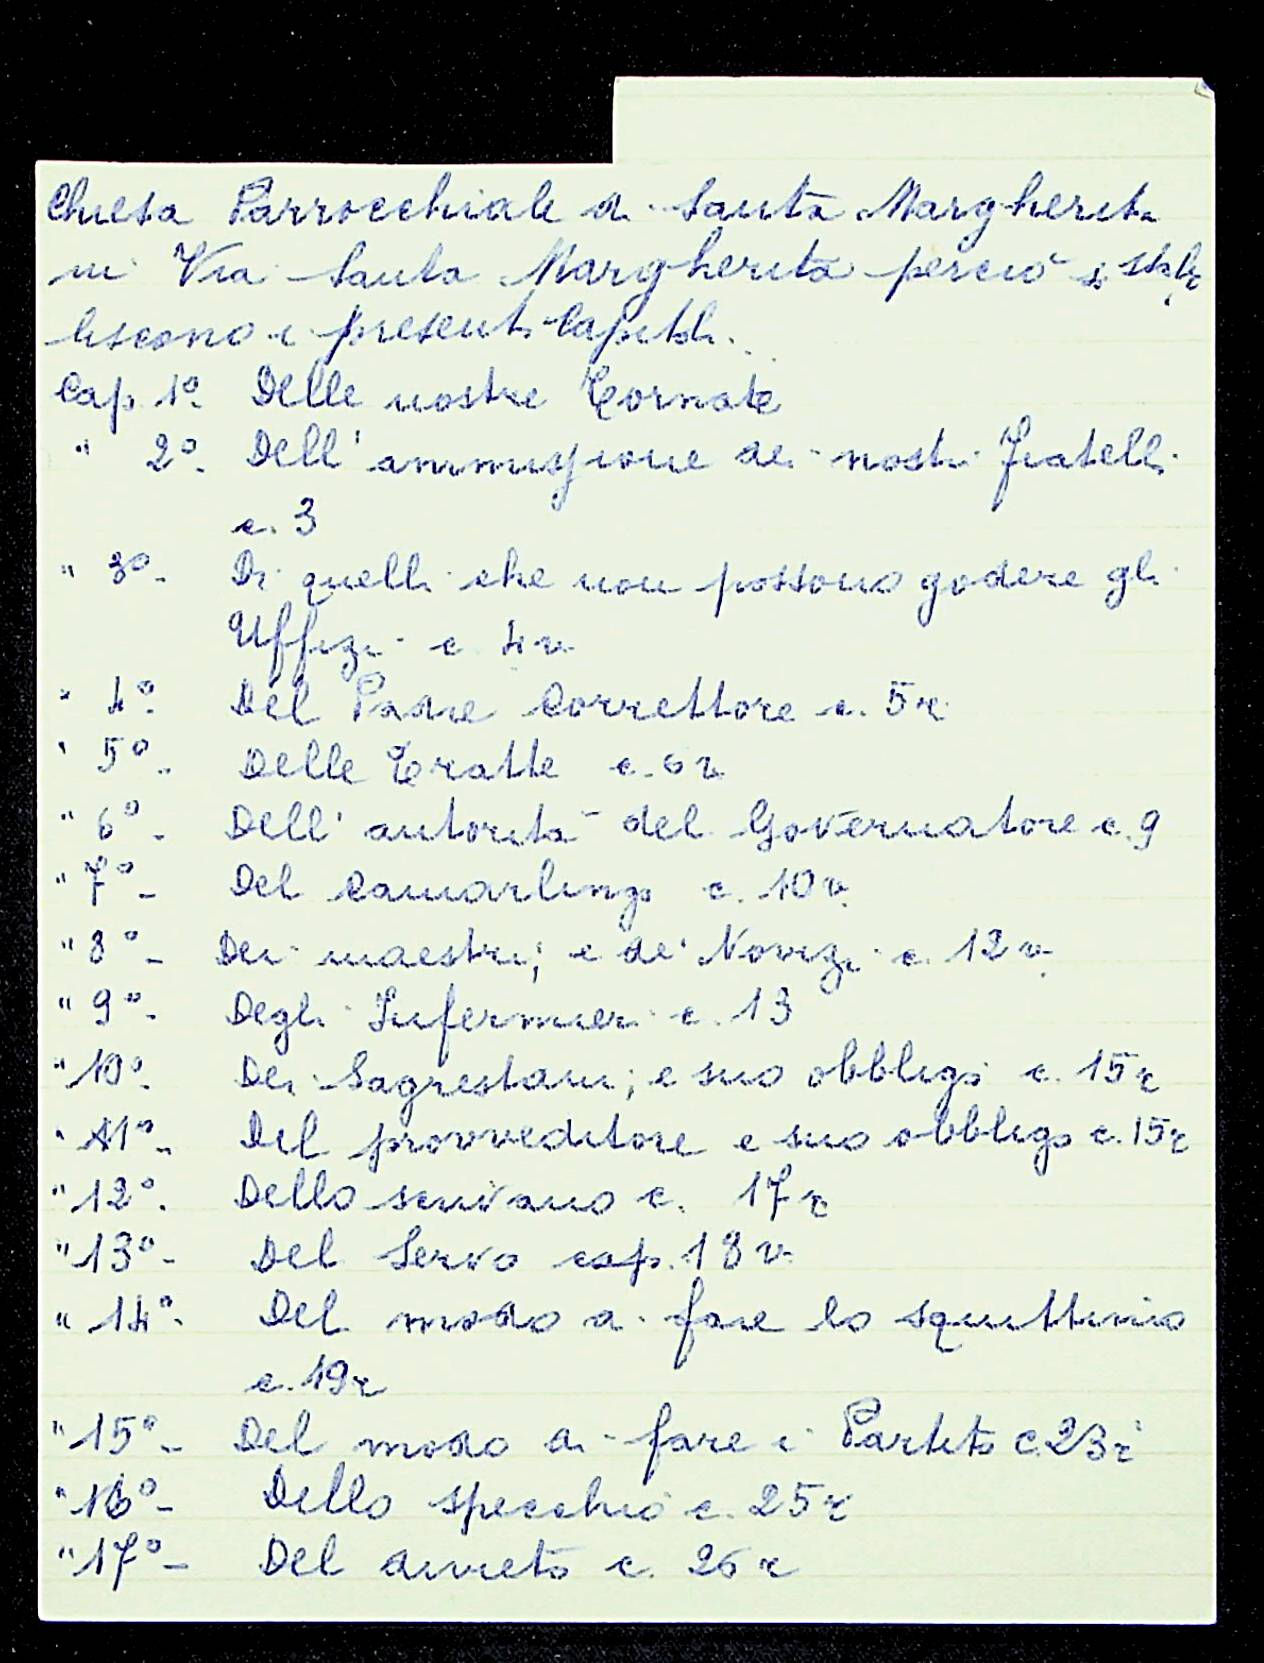 Chiesa Parrocchiale di Santa Margherita
in Via Santa Margherita perciò si stabi
liscono i presenti Capitoli.
Cap. 1º. Delle nostre Tornate
" 2º. Dell'ammissione dei nostri fratelli
c. 3
" 3º. Di quelli che non possono godere gli
Uffizi c. 4v
" 4º. Del Padre Correttore c. 5r
" 5º. Delle Tratte c. 6r
" 6º. Dell'autorità del Governatore c. 9
" 7º. Del Camarlingo c. 10v.
" 8º. Dei maestri; e de' Novizi c. 12v.
" 9º. Degli Infermieri c. 13
" 10º. Dei Sagrestani; e suo obbligo c. 15r
" 11º. Del provveditore e suo obbligo c. 15r
" 12º. Dello scrivano c. 17r
" 13º. Del Servo cap. 18v.
" 14º. Del modo di fare lo squittinio
c. 19r
" 15º. Del modo di fare i Partito c. 23r
" 16º. Dello specchio c. 25r
" 17º. Del divieto c. 26r